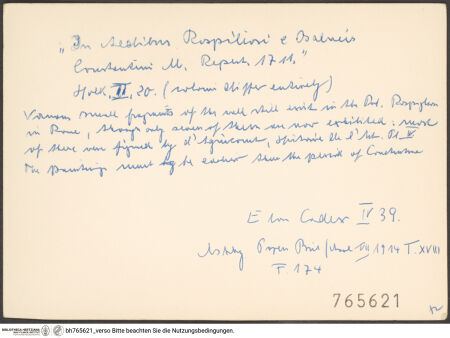 "In Aedibus Rospiliosi e Balneis
Constantini M. Repert. 1711."
Holk. II, 20. (colours differ entirely)
Various small fragments of the wall still exist in the Pal. Rospigliosi
in Rome, though only seven of them are now exhibited: most
of these were figured by d'Agincourt, Histoire de l'Art. Pl. V
The paintings must be earlier than the period of Constantine
Eton Codex IV 39.
Ashby Papers Brit. School VII 1914 T. XVIII
F. 174
765621
BIBLIOTHECA HERTZIANA bh765621_verso Bitte beachten Sie die Nutzungsbedingungen.